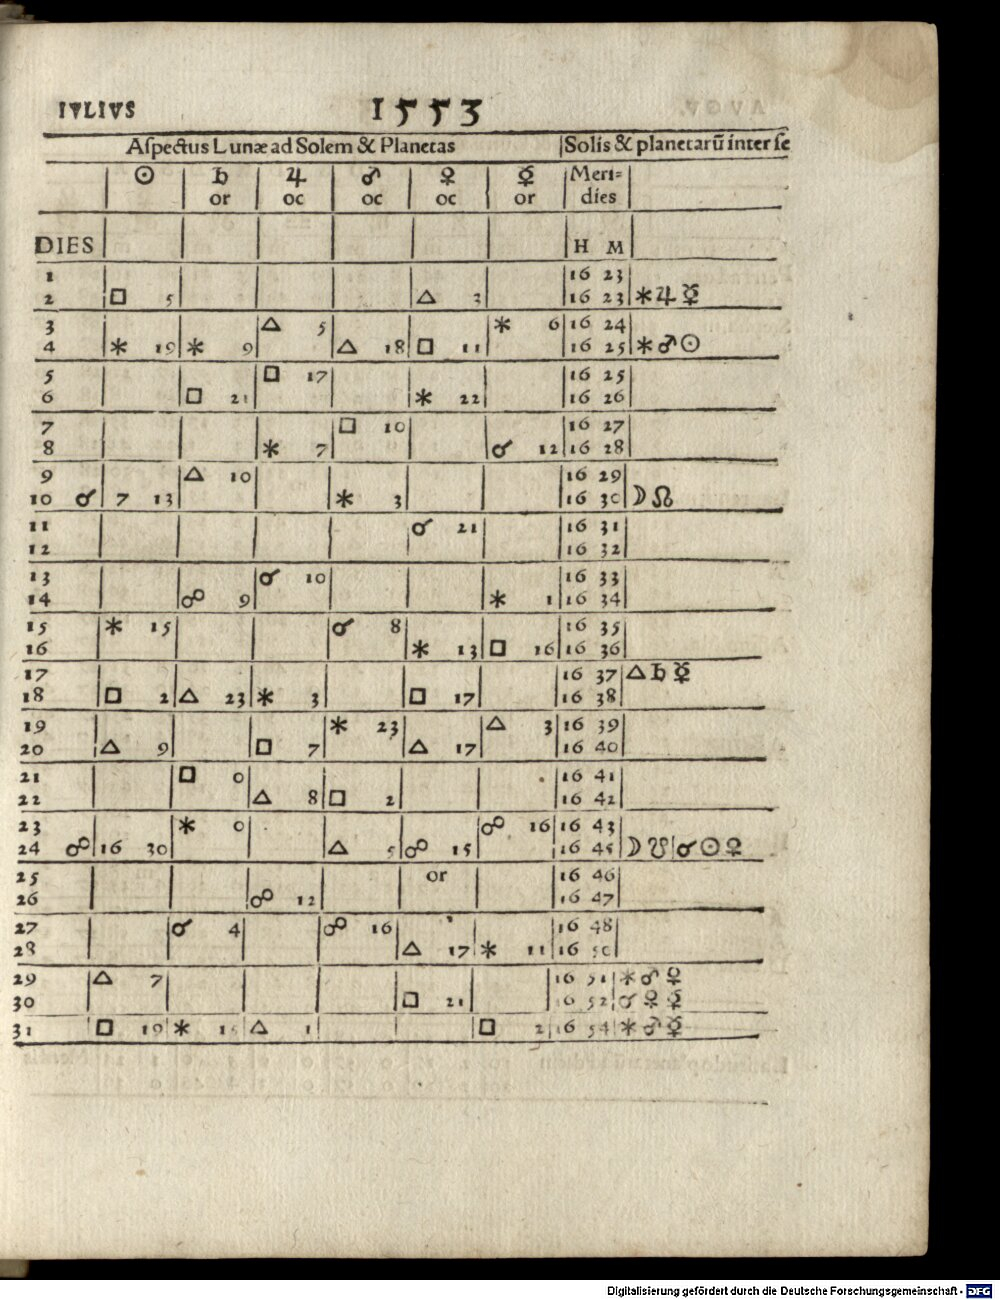 IVLIVS 1553
Aſpectus Lunæ ad Solem & Planetas Solis & planetarū inter ſe
☉ ♄ ♃ ♂ ♀ ☿ Meri=
or oc oc oc or dies
DIES H M
1 16 23
2 □ 5 △ 3 16 23 ✶ ♃ ☿
3 △ 5 ✶ 6 16 24
4 ✶ 19 ✶ 9 △ 18 □ 11 16 25 ✶ ♂ ☉
5 □ 17 16 25
6 □ 21 ✶ 22 16 26
7 □ 10 16 27
8 ✶ 7 ☌ 12 16 28
9 △ 10 16 29
10 ☌ 7 13 ✶ 3 16 30 ☽ ☊
11 ☌ 21 16 31
12 16 32
13 ☌ 10 16 33
14 ☍ 9 ✶ 1 16 34
15 ✶ 15 ☌ 8 16 35
16 ✶ 13 □ 16 16 36
17 16 37 △ ♄ ☿
18 □ 2 △ 23 ✶ 3 □ 17 16 38
19 ✶ 23 △ 3 16 39
20 △ 9 □ 7 △ 17 16 40
21 □ 0 16 41
22 △ 8 □ 2 16 42
23 ✶ 0 ☍ 16 16 43
24 ☍ 16 30 △ 5 ☍ 15 16 45 ☽ ☋ ☌ ☉ ♀
25 or 16 46
26 ☍ 12 16 47
27 ☌ 4 ☍ 16 16 48
28 △ 17 ✶ 11 16 50
29 △ 7 16 51 ✶ ♂ ♀
30 □ 21 16 52 ☌ ♀ ☿
31 □ 19 ✶ 15 △ 1 □ 2 16 54 ✶ ♂ ☿
Digitalisierung gefördert durch die Deutsche Forschungsgemeinschaft - DFG